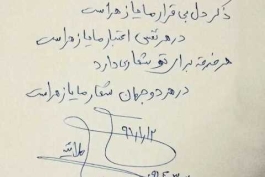 ذکر دل بی قرار ما یا زهراست
در هر نفسی اعتبار ما یا زهراست
هر فرقه برای تو شعاری دارد
در هر دو جهان شعار ما یا زهراست
۹۶/۱/۱۲